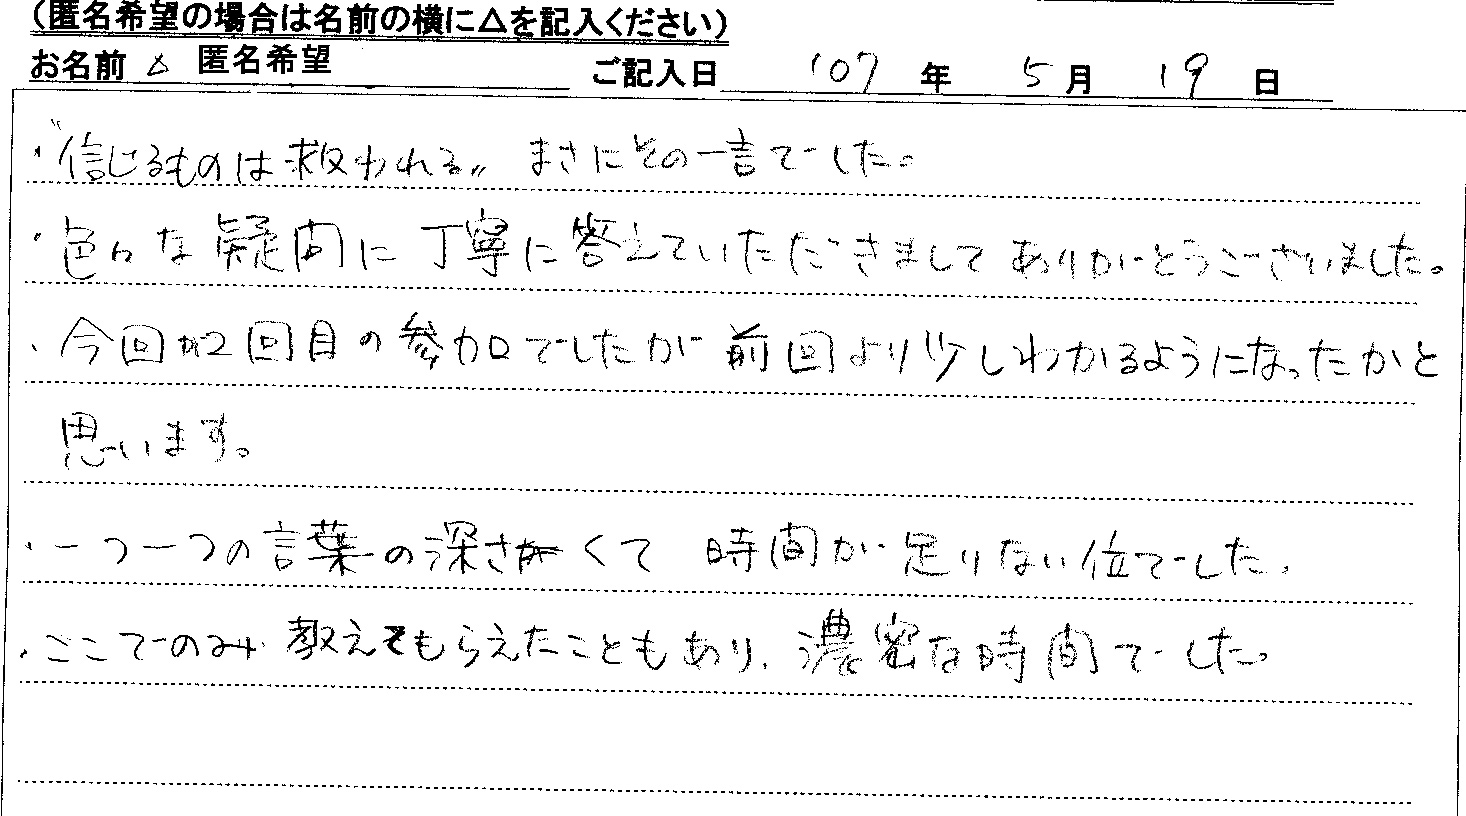 （匿名希望の場合は名前の横に△を記入ください）
お名前 △ 匿名希望 ご記入日 '07 年 5 月 19 日
・“信じるものは救われる〃 まさにその一言でした。
・色々な疑問に丁寧に答えていただきましてありがとうございました。
・今回が2回目の参加でしたが前回より少しわかるようになったかと
思います。
・一つ一つの言葉の深さくて 時間が足りない位でした。
・ここでのみ教えてもらえたこともあり、濃密な時間でした。